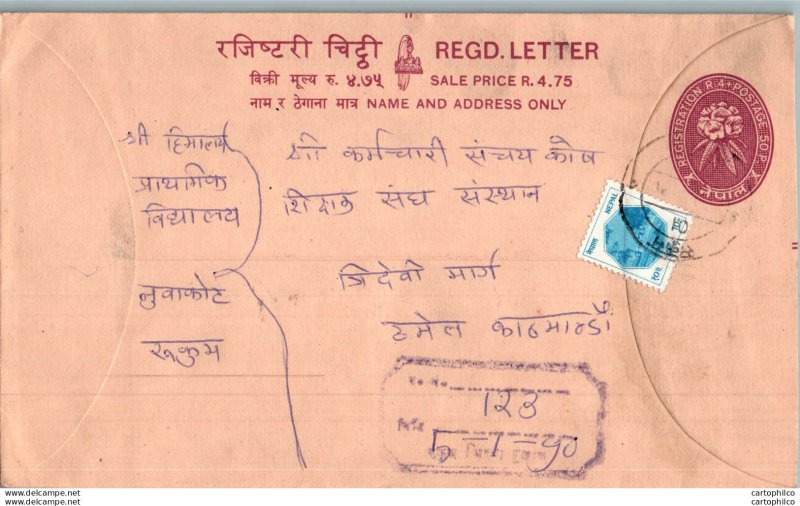 रजिष्टरी चिट्ठी REGD. LETTER
विक्री मूल्य रु. ४.७५ SALE PRICE R. 4.75
नाम र ठेगाना मात्र NAME AND ADDRESS ONLY
REGISTRATION R.4+POSTAGE 50 P.
नेपाल
श्री हिमालय
प्राथमिक
विद्यालय
नुवाकोट
रूकुम
श्री कर्मचारी संचय कोष
शिक्षक संघ संस्थान
त्रिदेवी मार्ग
ठमेल काठमाण्डौ
NEPAL
नेपाल
१२३
www.delcampe.net
cartophilco
cartophilco